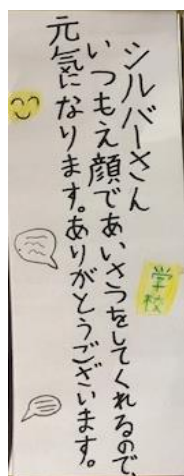 シルバーさん
いつもえ顔であいさつをしてくれるので、
元気になります。ありがとうございます。
学校